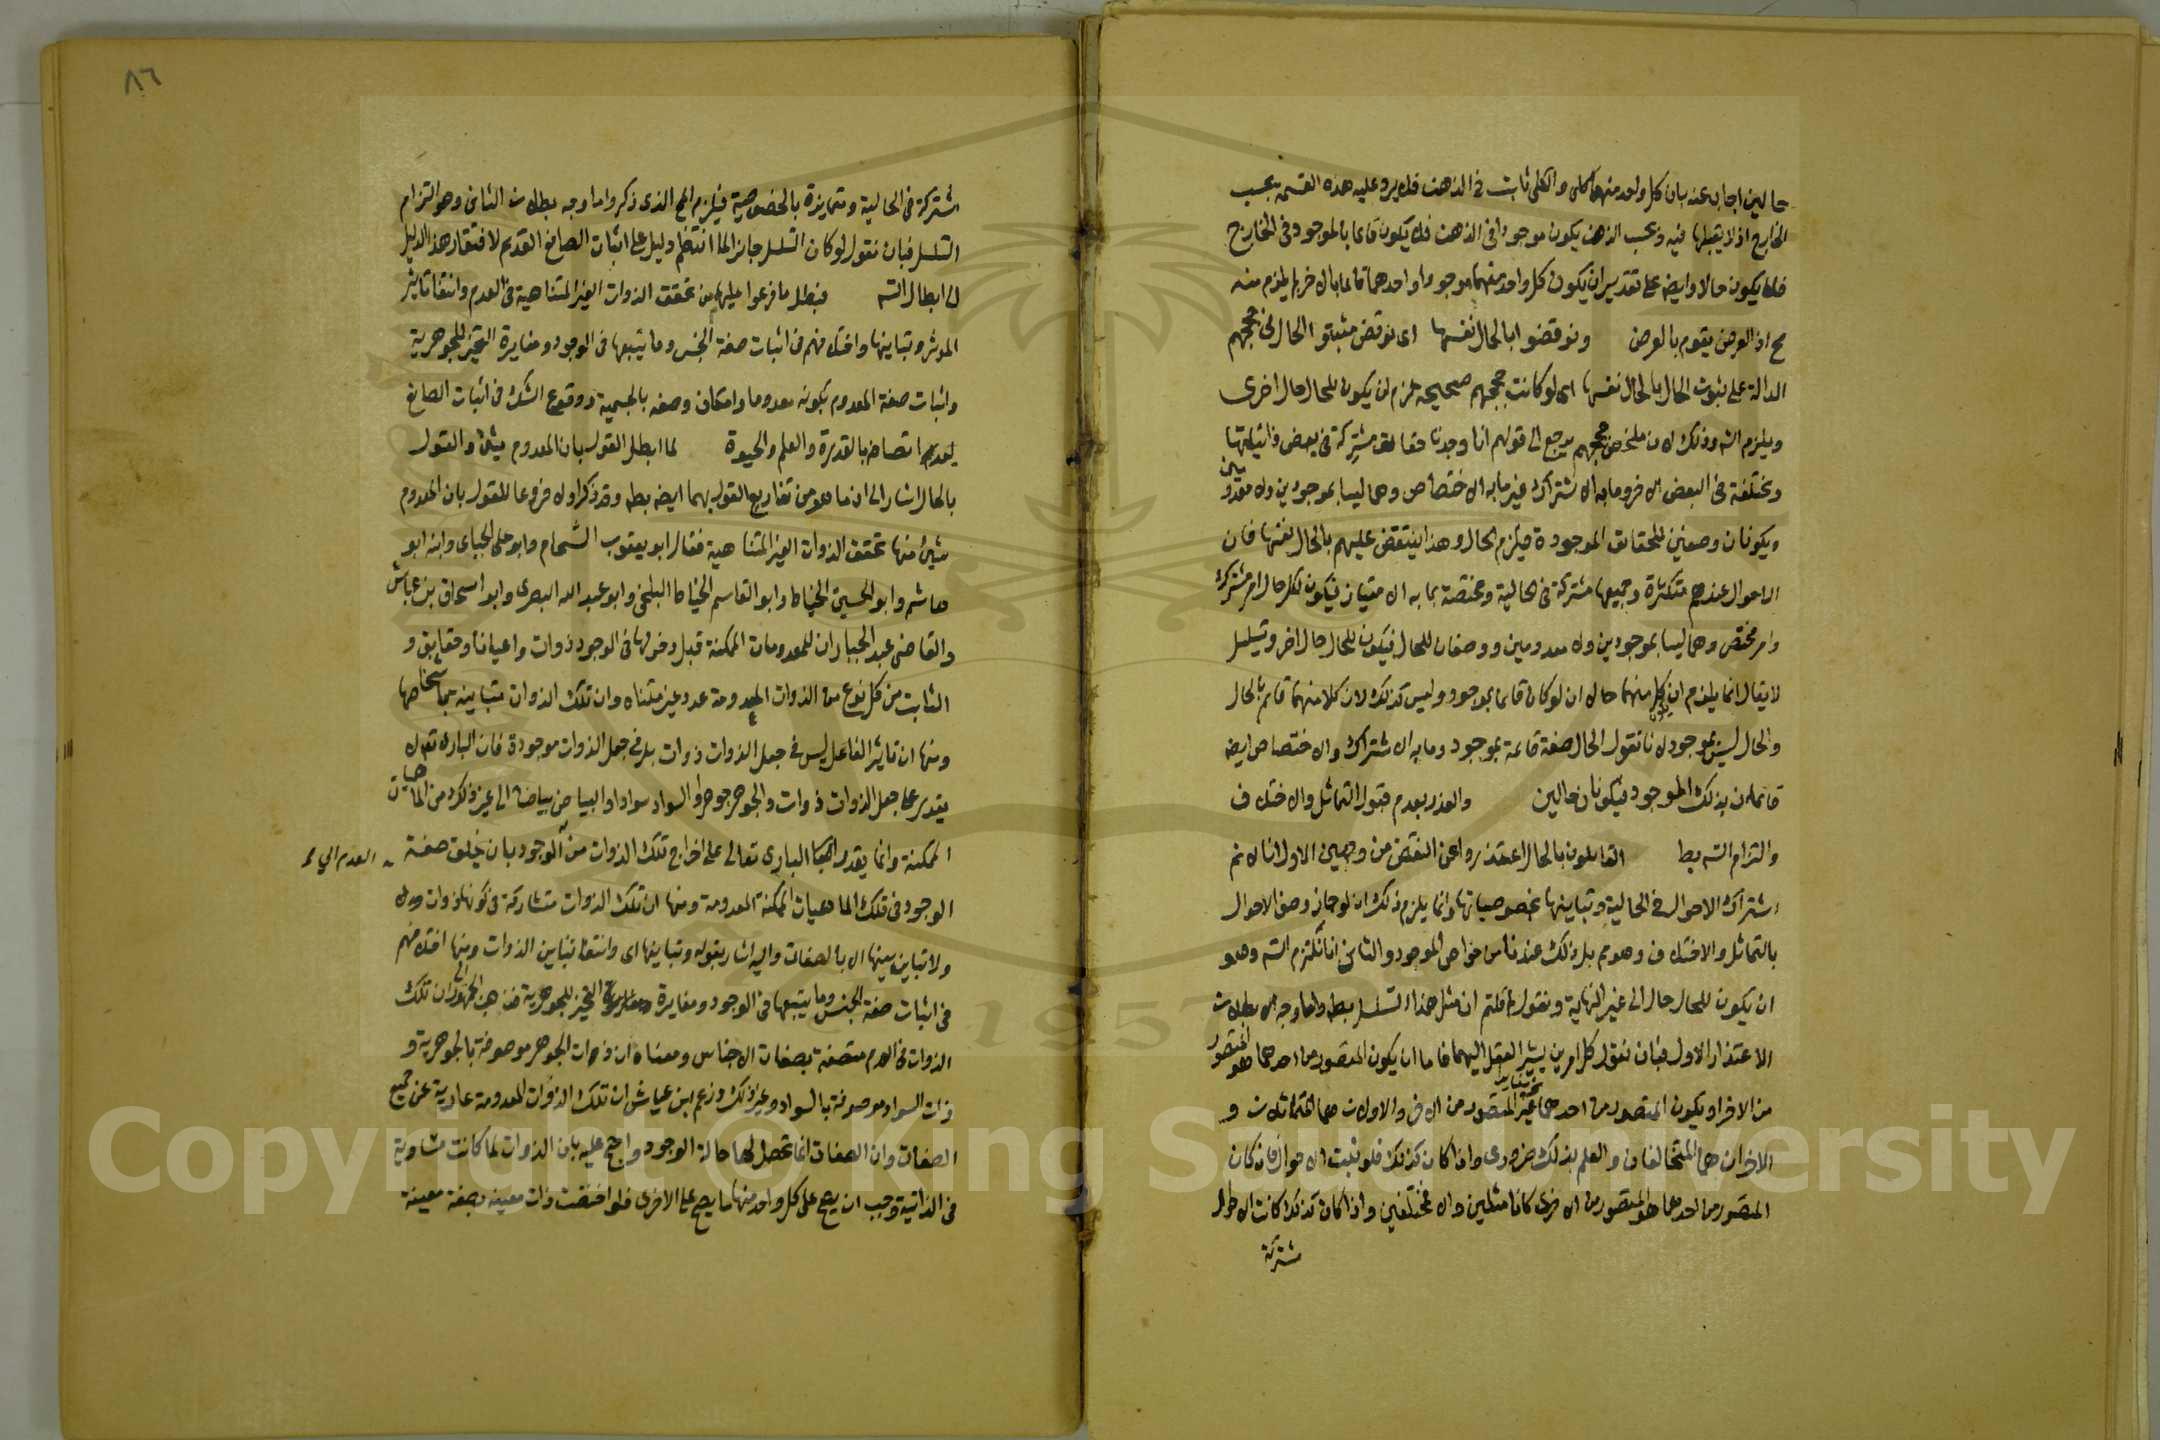 حالين اجاب عنه بان كل واحد منهما كلى والكلى ثابت فى الذهن فلا يرد عليه هذه القسمة بحسب
الخارج اذ لا يقبلها فيه وبحسب الذهن يكون موجودا فى الذهن فلا يكون قائما بالموجود فى الخارج
فلا يكون حالا وايضا على تقدير ان يكون كل واحد منهما موجودا واحدهما قائما بالاخر لم يلزم منه
مح اذ العرض يقوم بالعرض ونوقضوا بالحال نفسها اى نوقض مثبتو الحال فى حججهم
الدالة على ثبوت الحال بالحال نفسها اى لو كانت حججهم صحيحة لزم ان يكون للحال حال اخرى
ويلزم التسه وذلك لان ملخص حججهم يرجع الى قولهم انا وجدنا حقائق مشتركة فى بعض ذاتياتها
ومختلفة فى البعض الاخر وما به الاشتراك غير ما به الاختصاص وهما ليسا بموجودين ولا معدومين
ويكونان وصفين للحقائق الموجودة فيلزم الحال وهذا ينتقض عليهم بالحال نفسها فان
الاحوال عندهم متكثرة وجميعها مشتركة فى الحالية ومختصة بما به الامتياز فيكون لكل حال امر مشترك
وامر مختص وهما ليسا بموجودين ولا معدومين ووصفان للحال فيكون للحال حال اخر ويتسلسل
لا يقال انما يلزم ان يكون كل منهما حالا ان لو كان قائما بموجود وليس كذلك لان كلا منهما قائم بالحال
والحال ليس بموجود لانا نقول الحال صفة قائمة بموجود وما به الاشتراك والاختصاص ايضا
قائمان بذلك الموجود فيكونان حالين والعذر بعدم قبول التماثل والاختلاف
والتزام التسه بط القائلون بالحال اعتذروا عن النقض من وجهين الاول انا لا نم
اشتراك الاحوال فى الحالية وتباينها بخصوصياتها وانما يلزم ذلك ان لو جاز وصف الاحوال
بالتماثل والاختلاف وهو مم بل ذلك عندنا من خواص الموجود والثانى انا نلتزم التسه وهو
ان يكون للحال حال الى غير النهاية ونقول لم قلتم ان مثل هذا التسلسل بط واما وجه البطلان
الاعتذار الاول فبان نقول كل امرين يشير العقل اليهما فاما ان يكون المتصور من احدهما هو المتصور
من الاخر او يكون المتصور من احدهما غير المتصور من الاخر والاولان هما المتماثلان و
الاخران هما المتخالفان والعلم بذلك ضرورى واذا كان كذلك فلو ثبت الاحوال فان كان
المتصور من احدهما هو المتصور من الاخرى كانا مثلين والا مختلفين واذا كان كذلك كانت الاحوال
مشتركة
٨٦
مشتركة فى الحالية ومتمايزة بالخصوصية فيلزم المح الذى ذكروا واما وجه بطلان الثانى وهو التزام
التسلسل فبان نقول لو كان التسلسل جائزا لما انتظم دليل على اثبات الصانع القديم لافتقار هذا الدليل
الى ابطال التسه فبطل ما فرعوا عليها من تحقق الذوات الغير المتناهية فى العدم وانتفا تاثير
الموثر وتباينها واختلافهم فى اثبات صفة الجنس وما يتبعها فى الوجود ومغايرة التحيز للجوهرية
واثبات صفة المعدوم بكونه معدوما وامكان وصفه بالجسمية ووقوع الشك فى اثبات الصانع
بعد اتصافه بالقدرة والعلم والحيوة لما ابطل القول بان المعدوم شئ والقول
بالحال اشار الى ان ما هو من تفاريع القول بهما ايضا بط وقد ذكر اولا فروعا للقول بان المعدوم
شئ منها تحقق الذوات الغير المتناهية فقال ابو يعقوب الشحام وابو على الجبائى وابنه ابو
هاشم وابو الحسين الخياط وابو القاسم البلخى وابو عبد الله البصرى وابو اسحاق بن عياش
والقاضى عبد الجبار ان للمعدومات الممكنة قبل دخولها فى الوجود ذوات واعيانا وحقايق و
الثابت من كل نوع من الذوات المعدومة عدد غير متناه وان تلك الذوات متباينة باشخاصها
ومنها ان تاثير الفاعل ليس فى جعل الذوات ذوات بل فى جعل الذوات موجودة فان البارى تع لا
يقدر على جعل الذوات ذوات والجوهر جوهرا والسواد سوادا والبياض بياضا الى غير ذلك من الماهيات
الممكنة وانما يقدر البارى تعالى على اخراج تلك الذوات من العدم الى الوجود بان يخلق صفة
الوجود فى تلك الماهيات الممكنة المعدومة ومنها ان تلك الذوات متشاركة فى كونها ذوات
ولا تباين بينها الا بالصفات واليه اشار بقوله وتباينها اى وانتفا تباين الذوات ومنها اختلافهم
فى اثبات صفة الجنس وما يتبعها فى الوجود ومغايرة التحيز للجوهرية فذهب الجمهور الى ان تلك
الذوات فى العدم متصفة بصفات الاجناس ومعناه ان ذوات الجوهر موصوفة بالجوهرية و
ذات السواد موصوفة بالسواد وغير ذلك وزعم ابن عياش ان تلك الذوات المعدومة عارية عن جميع
الصفات وان الصفات انما تحصل لها حالة الوجود واحتج عليه بان الذوات لما كانت متساوية
فى الذاتية وجب ان يصح على كل واحد منها ما يصح على الاخرى فلو اختصت ذات معينة بصفة معينة
Copyright © King Saud University
1957